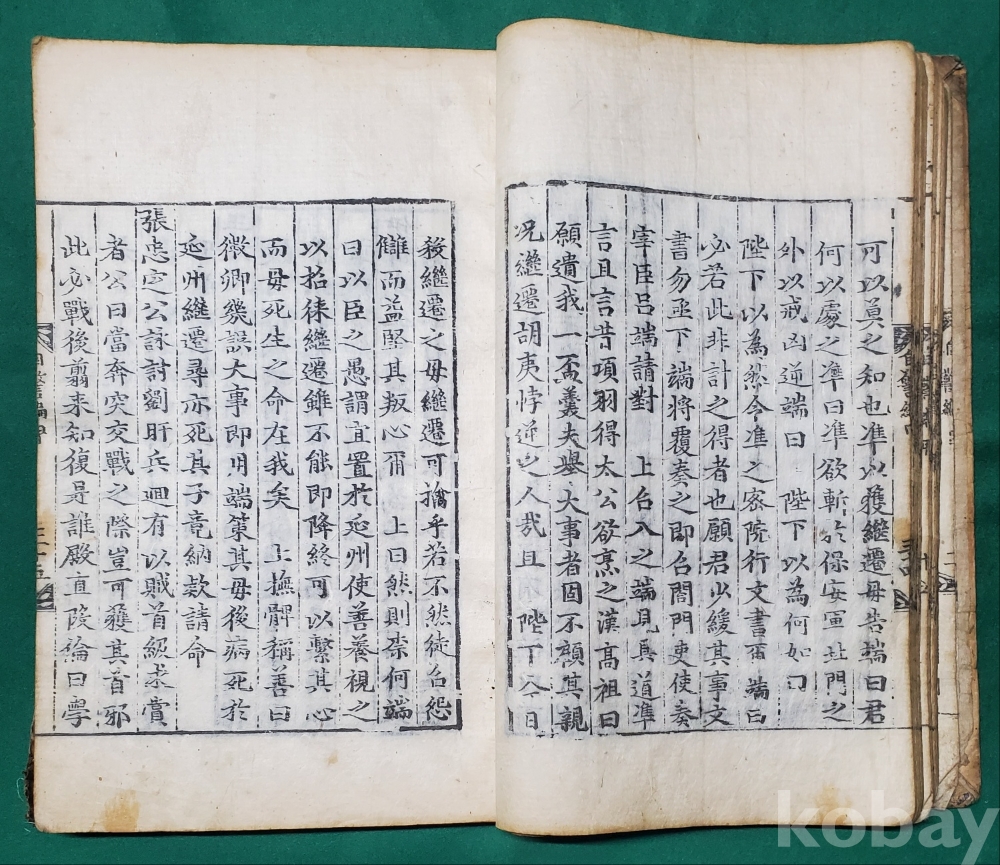 可以莫之知也準以獲繼遷母告端曰君
何以處之準曰準欲斬於保安軍北門之
外以戒凶逆端曰　陛下以為何如曰
陛下以為然令準之密院行文書耳端曰
必若此非計之得者也願君少緩其事文
書勿亟下端將覆奏之即召閤門吏使奏
宰臣呂端請對　上召入之端見具道準
言且言昔項羽得太公欲烹之漢高祖曰
願遺我一盃羹夫舉大事者固不顧其親
况繼遷胡夷悖逆之人哉且　陛下今日
殺繼遷之母繼遷可擒乎若不然徒召怨
讎而益堅其叛心爾　上曰然則柰何端
曰以臣之愚謂宜置於延州使善養視之
以招徠繼遷雖不能即降終可以繫其心
而母死生之命在我矣　上撫髀稱善曰
微卿幾誤大事即用端策其母後病死於
延州繼遷尋亦死其子竟納款請命
張忠定公詠討劉旰兵廻有以賊首級求賞
者公曰當奔突交戰之際豈可獲其首邪
此必戰後剪来知復是誰殿直段綸曰學
自警編
kobay